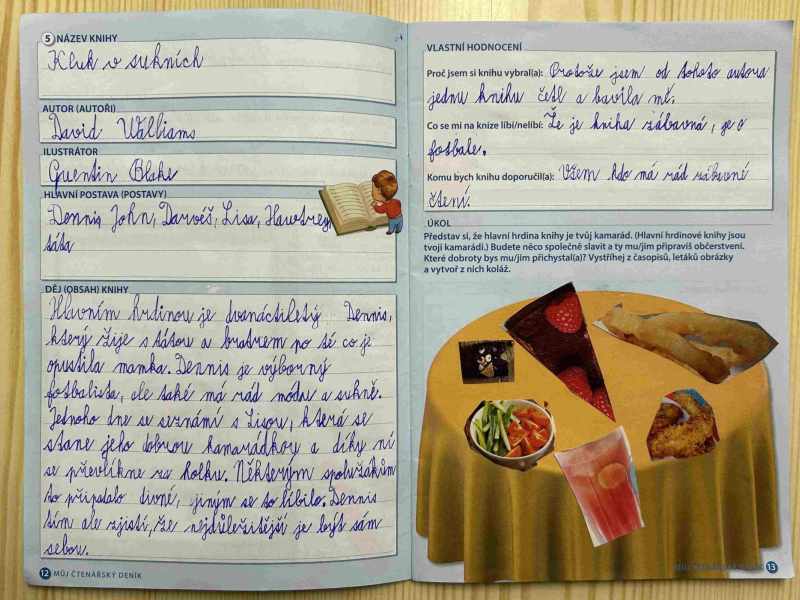 5 NÁZEV KNIHY
Kluk v sukních
AUTOR (AUTOŘI)
David Walliams
ILUSTRÁTOR
Quentin Blake
HLAVNÍ POSTAVA (POSTAVY)
Dennis, John, Darvéš, Lisa, Hawtrey,
táta
DĚJ (OBSAH) KNIHY
Hlavním hrdinou je dvanáctiletý Dennis,
který žije s tátou a bratrem po té co je
opustila mamka. Dennis je výborný
fotbalista, ale také má rád módu a sukně.
Jednoho dne se seznámí s Lisou, která se
stane jeho dobrou kamarádkou a díky ní
se převlíkne za holku. Některým spolužákům
to připadalo divné, jiným se to líbilo. Dennis
tím ale zjistí, že nejdůležitější je být sám
sebou.
12 MŮJ ČTENÁŘSKÝ DENÍK
VLASTNÍ HODNOCENÍ
Proč jsem si knihu vybral(a): Protože jsem od tohoto autora
jednu knihu četl a bavila mě.
Co se mi na knize líbí/nelíbí: Že je kniha zábavná, je o
fotbale.
Komu bych knihu doporučil(a): Všem kdo má rád zábavné
čtení.
ÚKOL
Představ si, že hlavní hrdina knihy je tvůj kamarád. (Hlavní hrdinové knihy jsou
tvoji kamarádi.) Budete něco společně slavit a ty mu/jim připravíš občerstvení.
Které dobroty bys mu/jim přichystal(a)? Vystříhej z časopisů, letáků obrázky
a vytvoř z nich koláž.
MŮJ ČTENÁŘSKÝ DENÍK 13